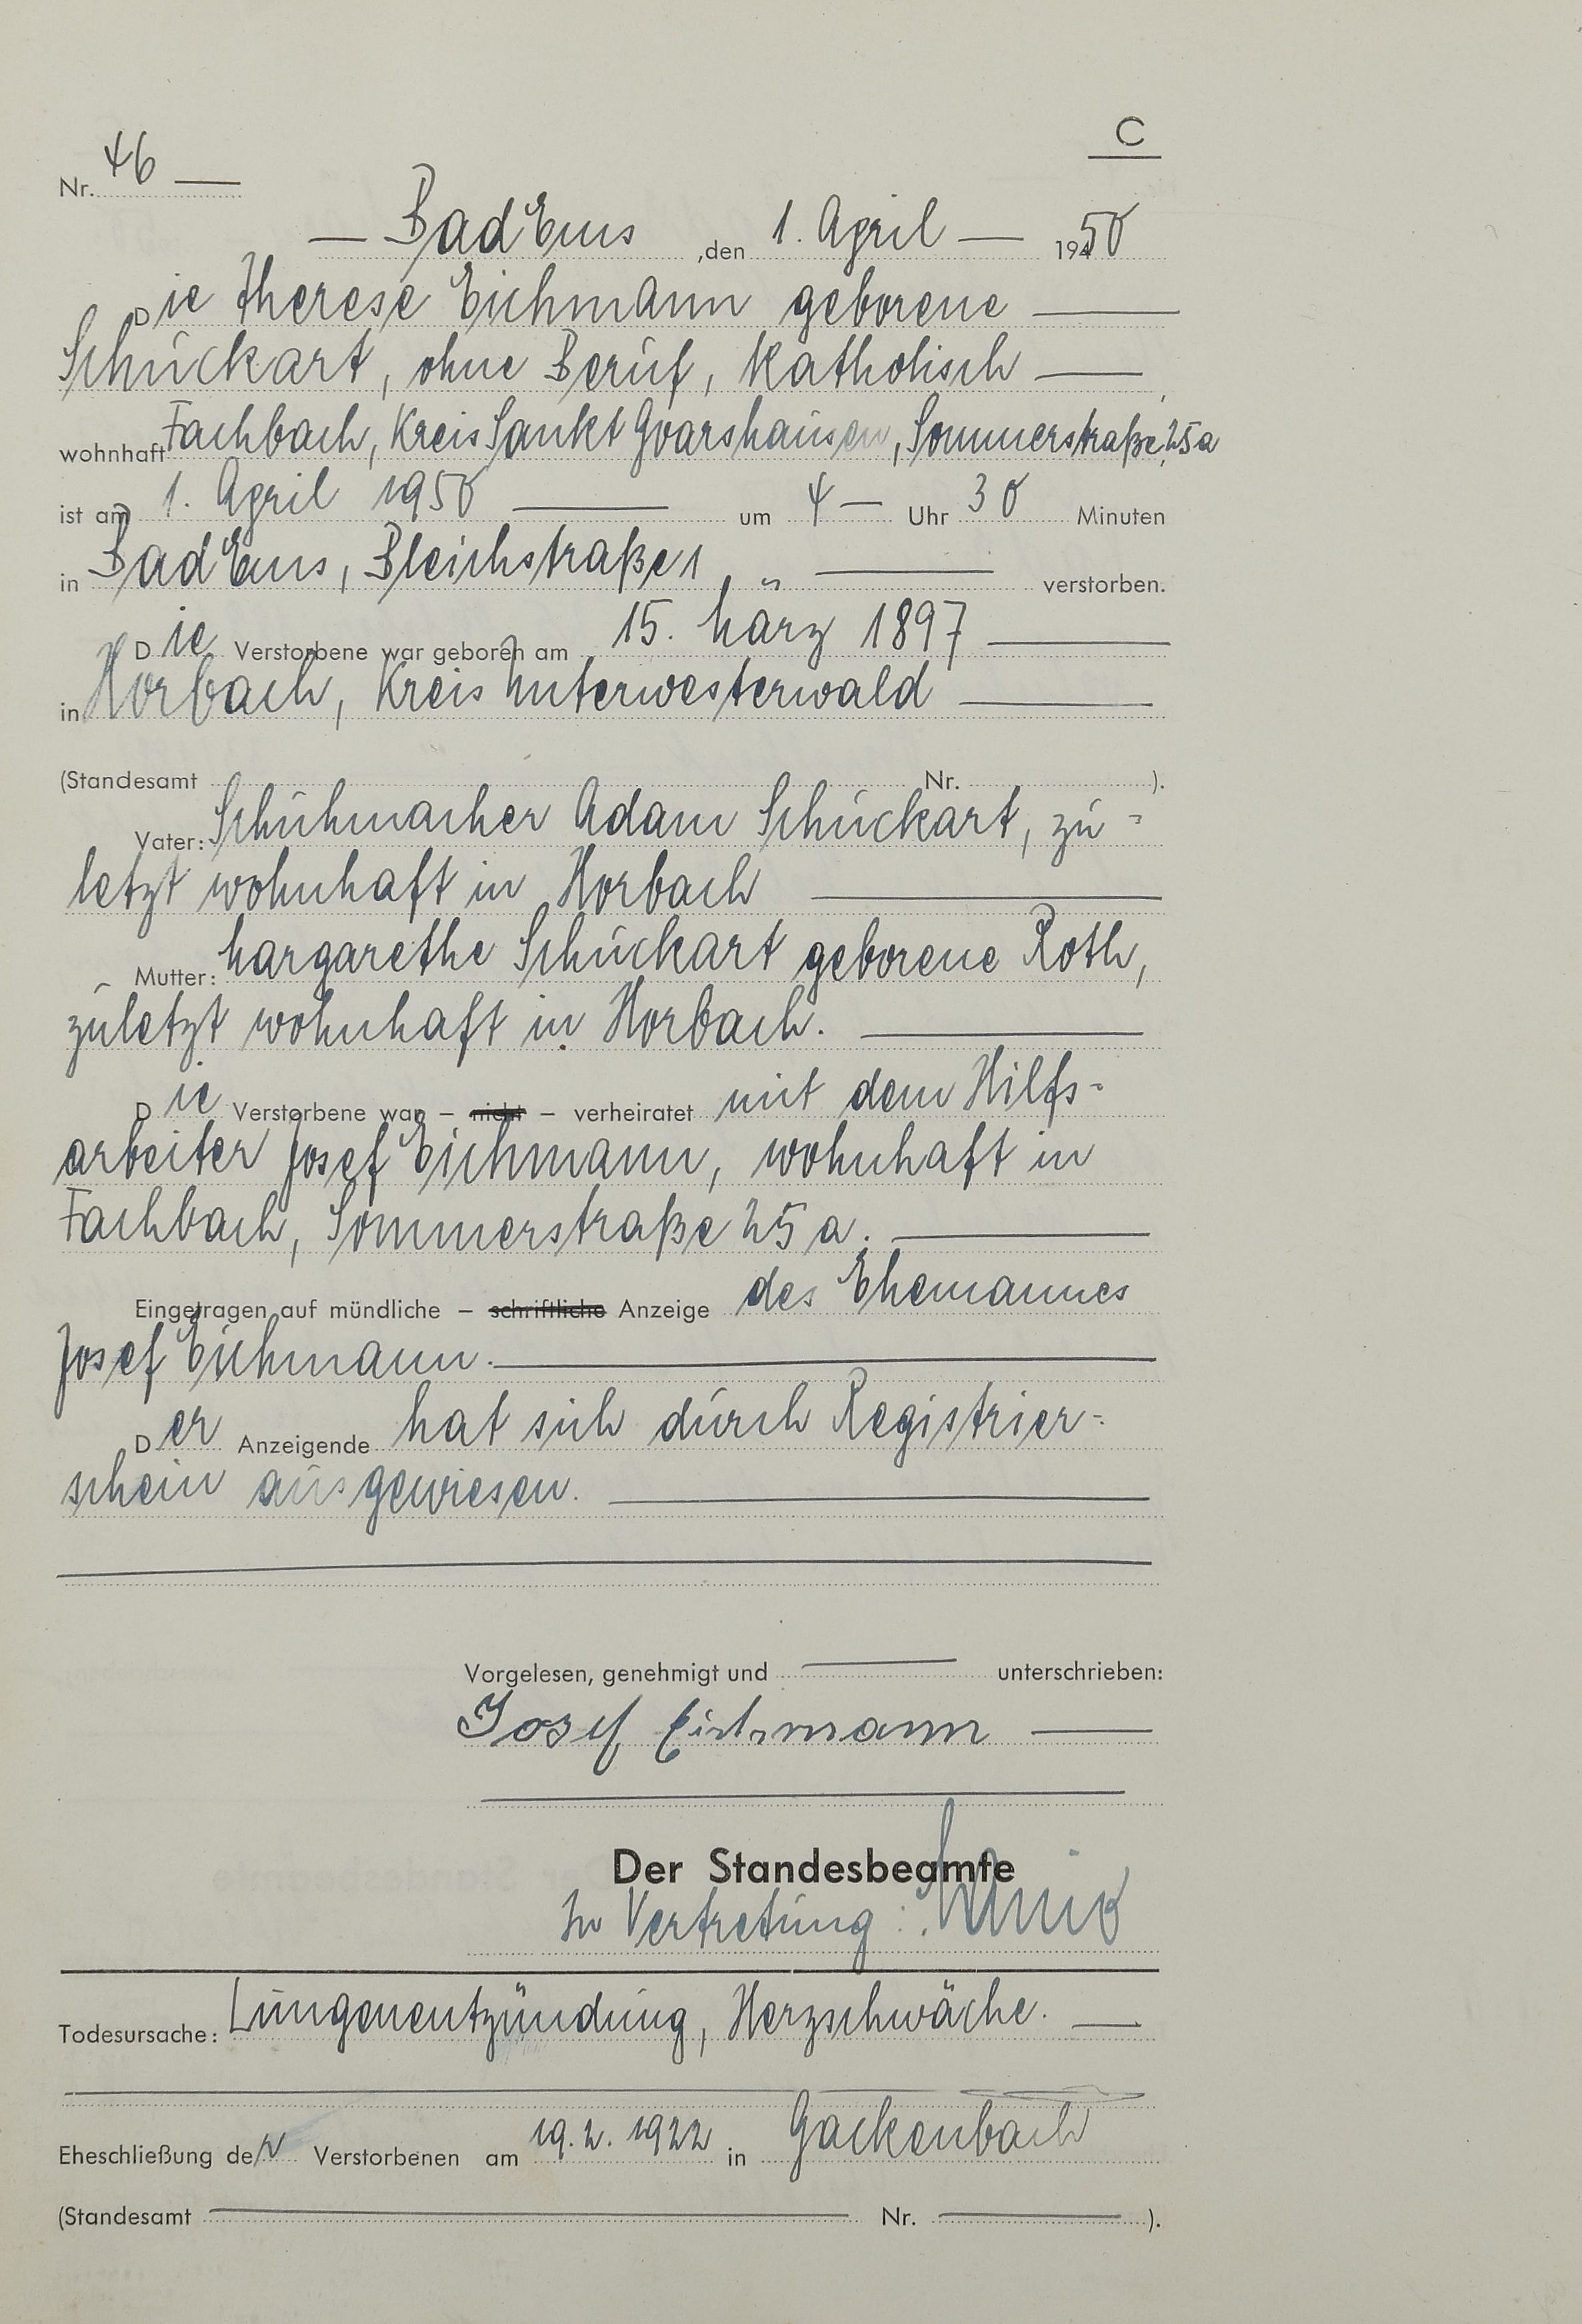 C
Nr. 46 —
— Bad Ems, den 1. April — 1950
Die Therese Eichmann geborene —
Schuckart, ohne Beruf, katholisch —,
wohnhaft Fachbach, Kreis Sankt Goarshausen, Sommerstraße 25a
ist am 1. April 1950 — um 4 — Uhr 30 Minuten
in Bad Ems, Bleichstraße 1 „ — verstorben.
Die Verstorbene war geboren am 15. März 1897 —
in Horbach, Kreis Unterwesterwald —
(Standesamt Nr. ).
Vater: Schuhmacher Adam Schuckart, zu=
letzt wohnhaft in Horbach —
Mutter: Margarethe Schuckart geborene Roth,
zuletzt wohnhaft in Horbach. —
Die Verstorbene war – nicht – verheiratet mit dem Hilfs=
arbeiter Josef Eichmann, wohnhaft in
Fachbach, Sommerstraße 25 a. —
Eingetragen auf mündliche – schriftliche Anzeige des Ehemannes
Josef Eichmann. —
Der Anzeigende hat sich durch Registrier=
schein ausgewiesen. —
Vorgelesen, genehmigt und — unterschrieben:
Josef Eichmann —
Der Standesbeamte
In Vertretung:
Todesursache: Lungenentzündung, Herzschwäche. —
Eheschließung der Verstorbenen am 19.2.1922 in Gackenbach
(Standesamt — Nr. —).